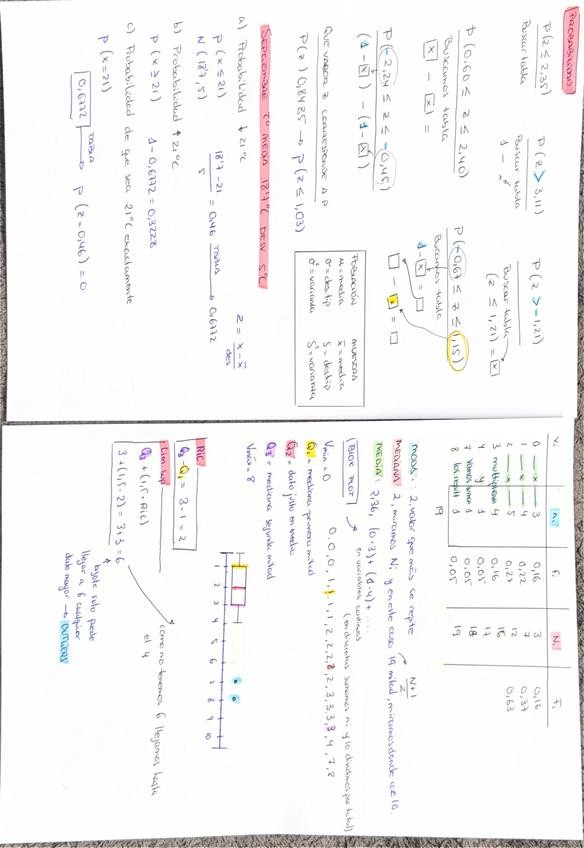 PROBABILIDAD
P(z ≤ 2,35)
Buscar tabla
P(z > 3,11)
Buscar tabla
1 -
P(z > -1,21)
Buscar tabla
(z ≤ 1,21) = [x]
P(0,60 ≤ z ≤ 2,40)
Buscamos tabla
[x] - [x] =
P(-0,67 ≤ z ≤ 1,15)
Buscamos tabla
1-[x] = □
□ - [x] = □
P(-2,24 ≤ z ≤ -0,45)
(1-[x]) - (1-[x])
Que valor z corresponde a P
P(z) 0,8485 → P(z ≤ 1,03)
POBLACIÓN
μ = media
σ = destip
σ² = varianza
MUESTRA
x̄ = media
S = destip
S² = varianza
SEPTIEMBRE Tº MEDIA 18'7ºC DESV 5ºC
a) Probabilidad ↓ 21ºC
P(x ≤ 21)
N(18'7, 5)
18'7 - 21 / 5 = 0,46 TABLA → 0,6772
z = x - x̄ / des
b) Probabilidad ↑ 21ºC
P(x ≥ 21) 1 - 0,6772 = 0,3228
c) Probabilidad de que sea 21ºC exactamente
P(x = 21)
0,6772 TABLA → P(z = 0,46) = 0
Xi ni fi Ni Fi
0 x 3 0,16 3 0,16
1 x 4 0,22 7 0,37
2 x 5 0,27 12 0,63
3 multiplicam 4 0,16 16
4 y 1 0,05 17
7 vamos suma 1 0,05 18
8 los result 1 0,05 19
19
MODA: 2 valor que más se repite
MEDIANA 2, miramos Ni y en este caso 19 mitad, miramos donde cae 10.
N+1 / 2
MEDIA: 2,36, (0·3) + (1·4) + ...
(en discretas sumamos ni y lo dividimos por total)
BOX PLOT → en variables continuas
Vmin = 0 0, 0, 0, 1, 1, 1, 1, 2, 2, 2, 2, 2, 3, 3, 3, 3, 4, 7, 8
Q1 = mediana primera mitad
Q2 = dato justo en medio
Q3 = mediana segunda mitad
Vmáx = 8
1 2 3 4 5 6 7 8 9 10
RIC
Q3 - Q1 = 3 - 1 = 2
Lim. sup
Q3 + (1,5 · RIC)
3 + (1,5 · 2) = 3 + 3 = 6
como no tenemos 6 llegamos hasta
el 4
bigote solo puede
llegar a 6 cualquier
dato mayor → OUTLIERS